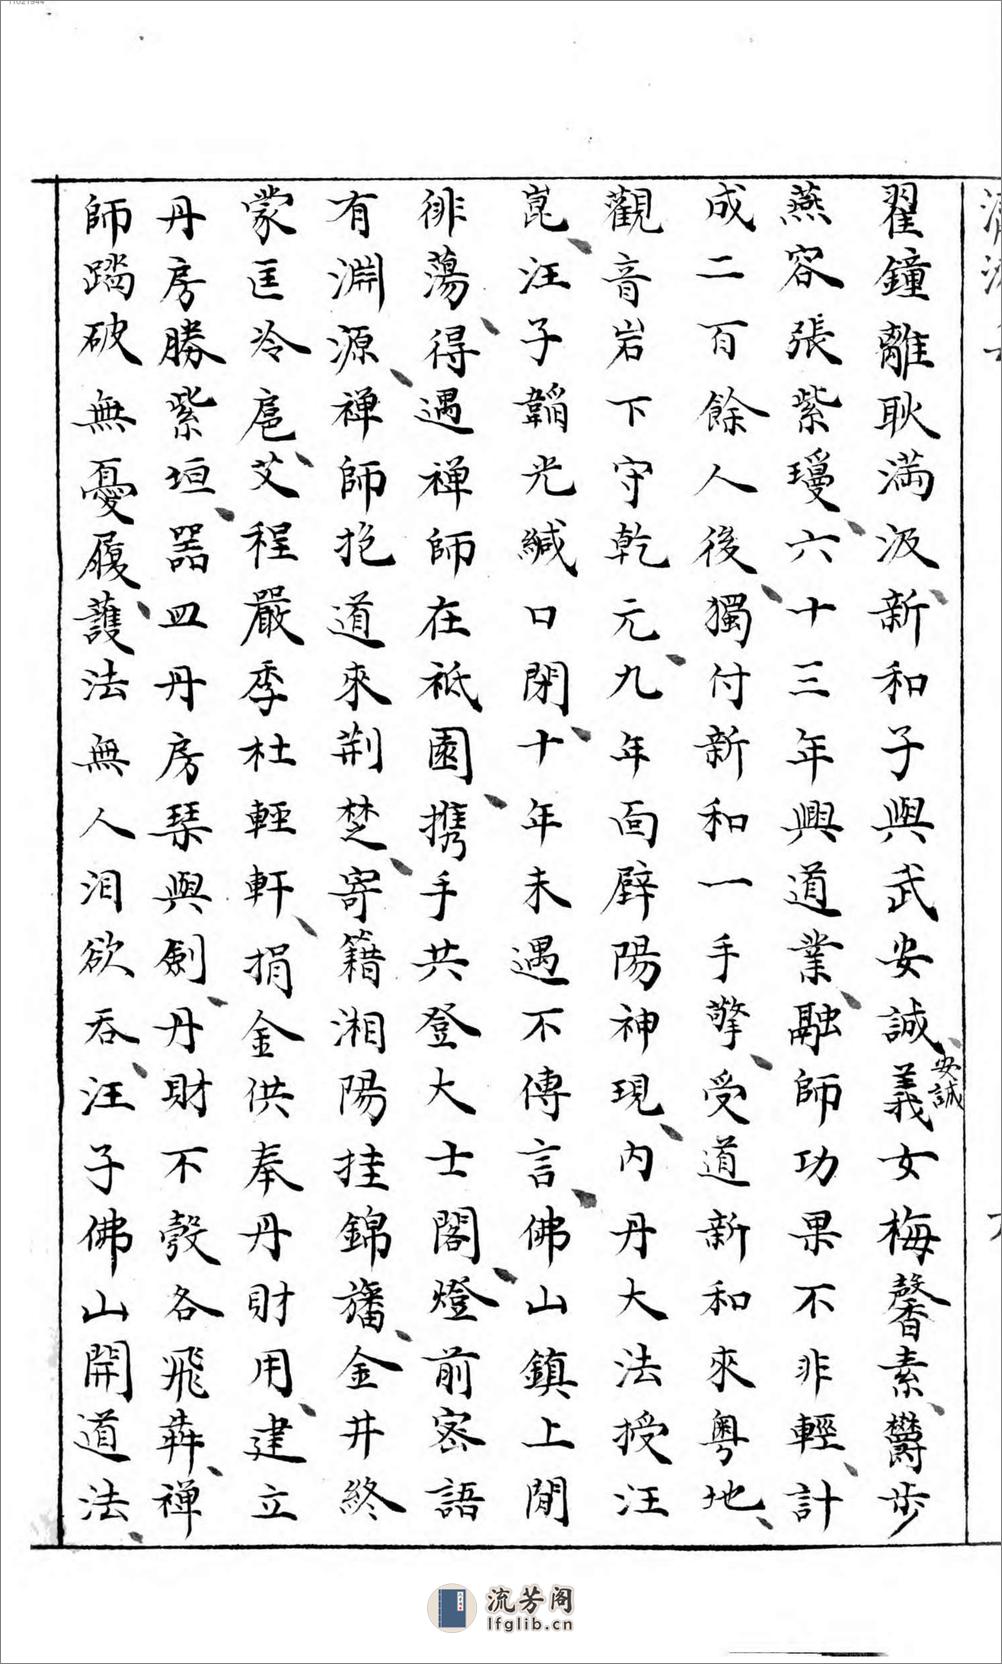 翟鐘離耿滿汲新和子與武安誠義女梅馨素欝步
安誠
燕容張紫瓊六十三年興道業融師功果不非輕計
成二百餘人後獨付新和一手擎受道新和來粵地
觀音岩下守乾元九年面壁陽神現內丹大法授汪
崑汪子韜光緘口閉十年未遇不傳言佛山鎮上閒
徘蕩得遇禅師在祗園携手共登大士閣燈前密語
有淵源禅師抱道來荆楚寄籍湘陽挂錦旛金井終
蒙匡冷扈艾程嚴季杜輕軒捐金供奉丹財用建立
丹房勝紫垣器皿丹房琹與劍丹財不彀各飛犇禅
師踏破無憂履護法無人泪欲吞汪子佛山開道法
流芳阁
lfglib.cn